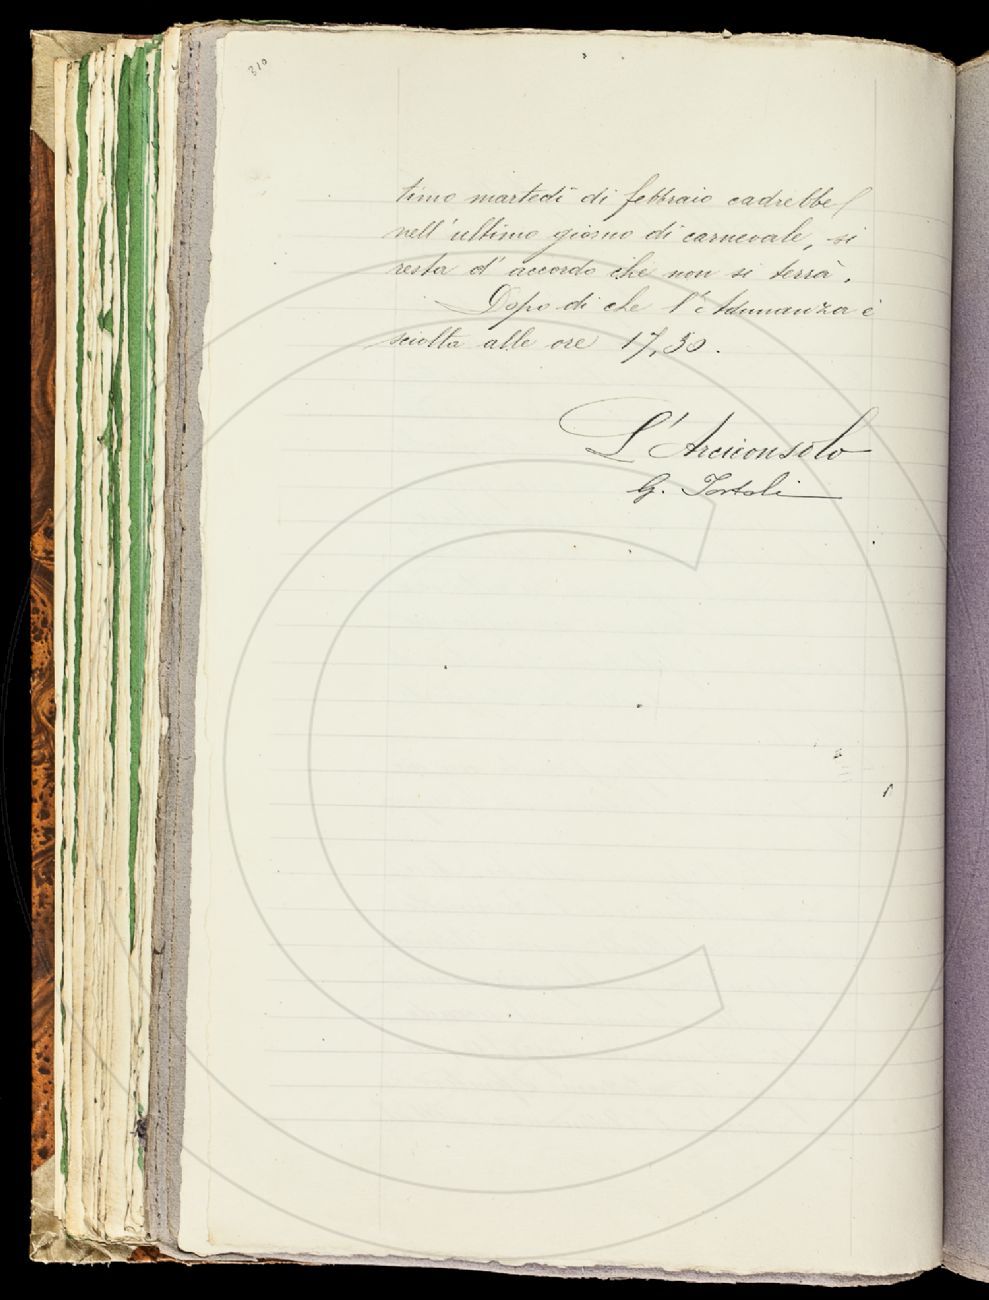 310
timo martedì di febbraio cadrebbe
nell'ultimo giorno di carnevale, si
resta d'accordo che non si terrà.
Dopo di che l'Adunanza è
sciolta alle ore 17,30.
L'Arciconsolo
G. Tortoli